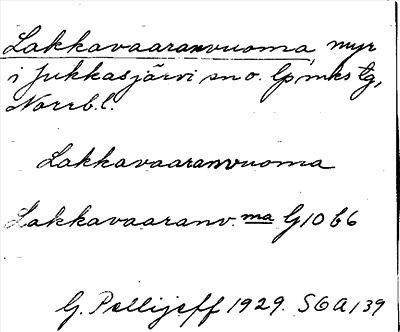 Lakkavaaranvuoma, myr
i Jukkasjärvi sn o. lpmks tg,
Norrb.l.
Lakkavaaranvuoma
Lakkavaaranv. ma G10 b6
G. Pellijeff 1929. SOA 139